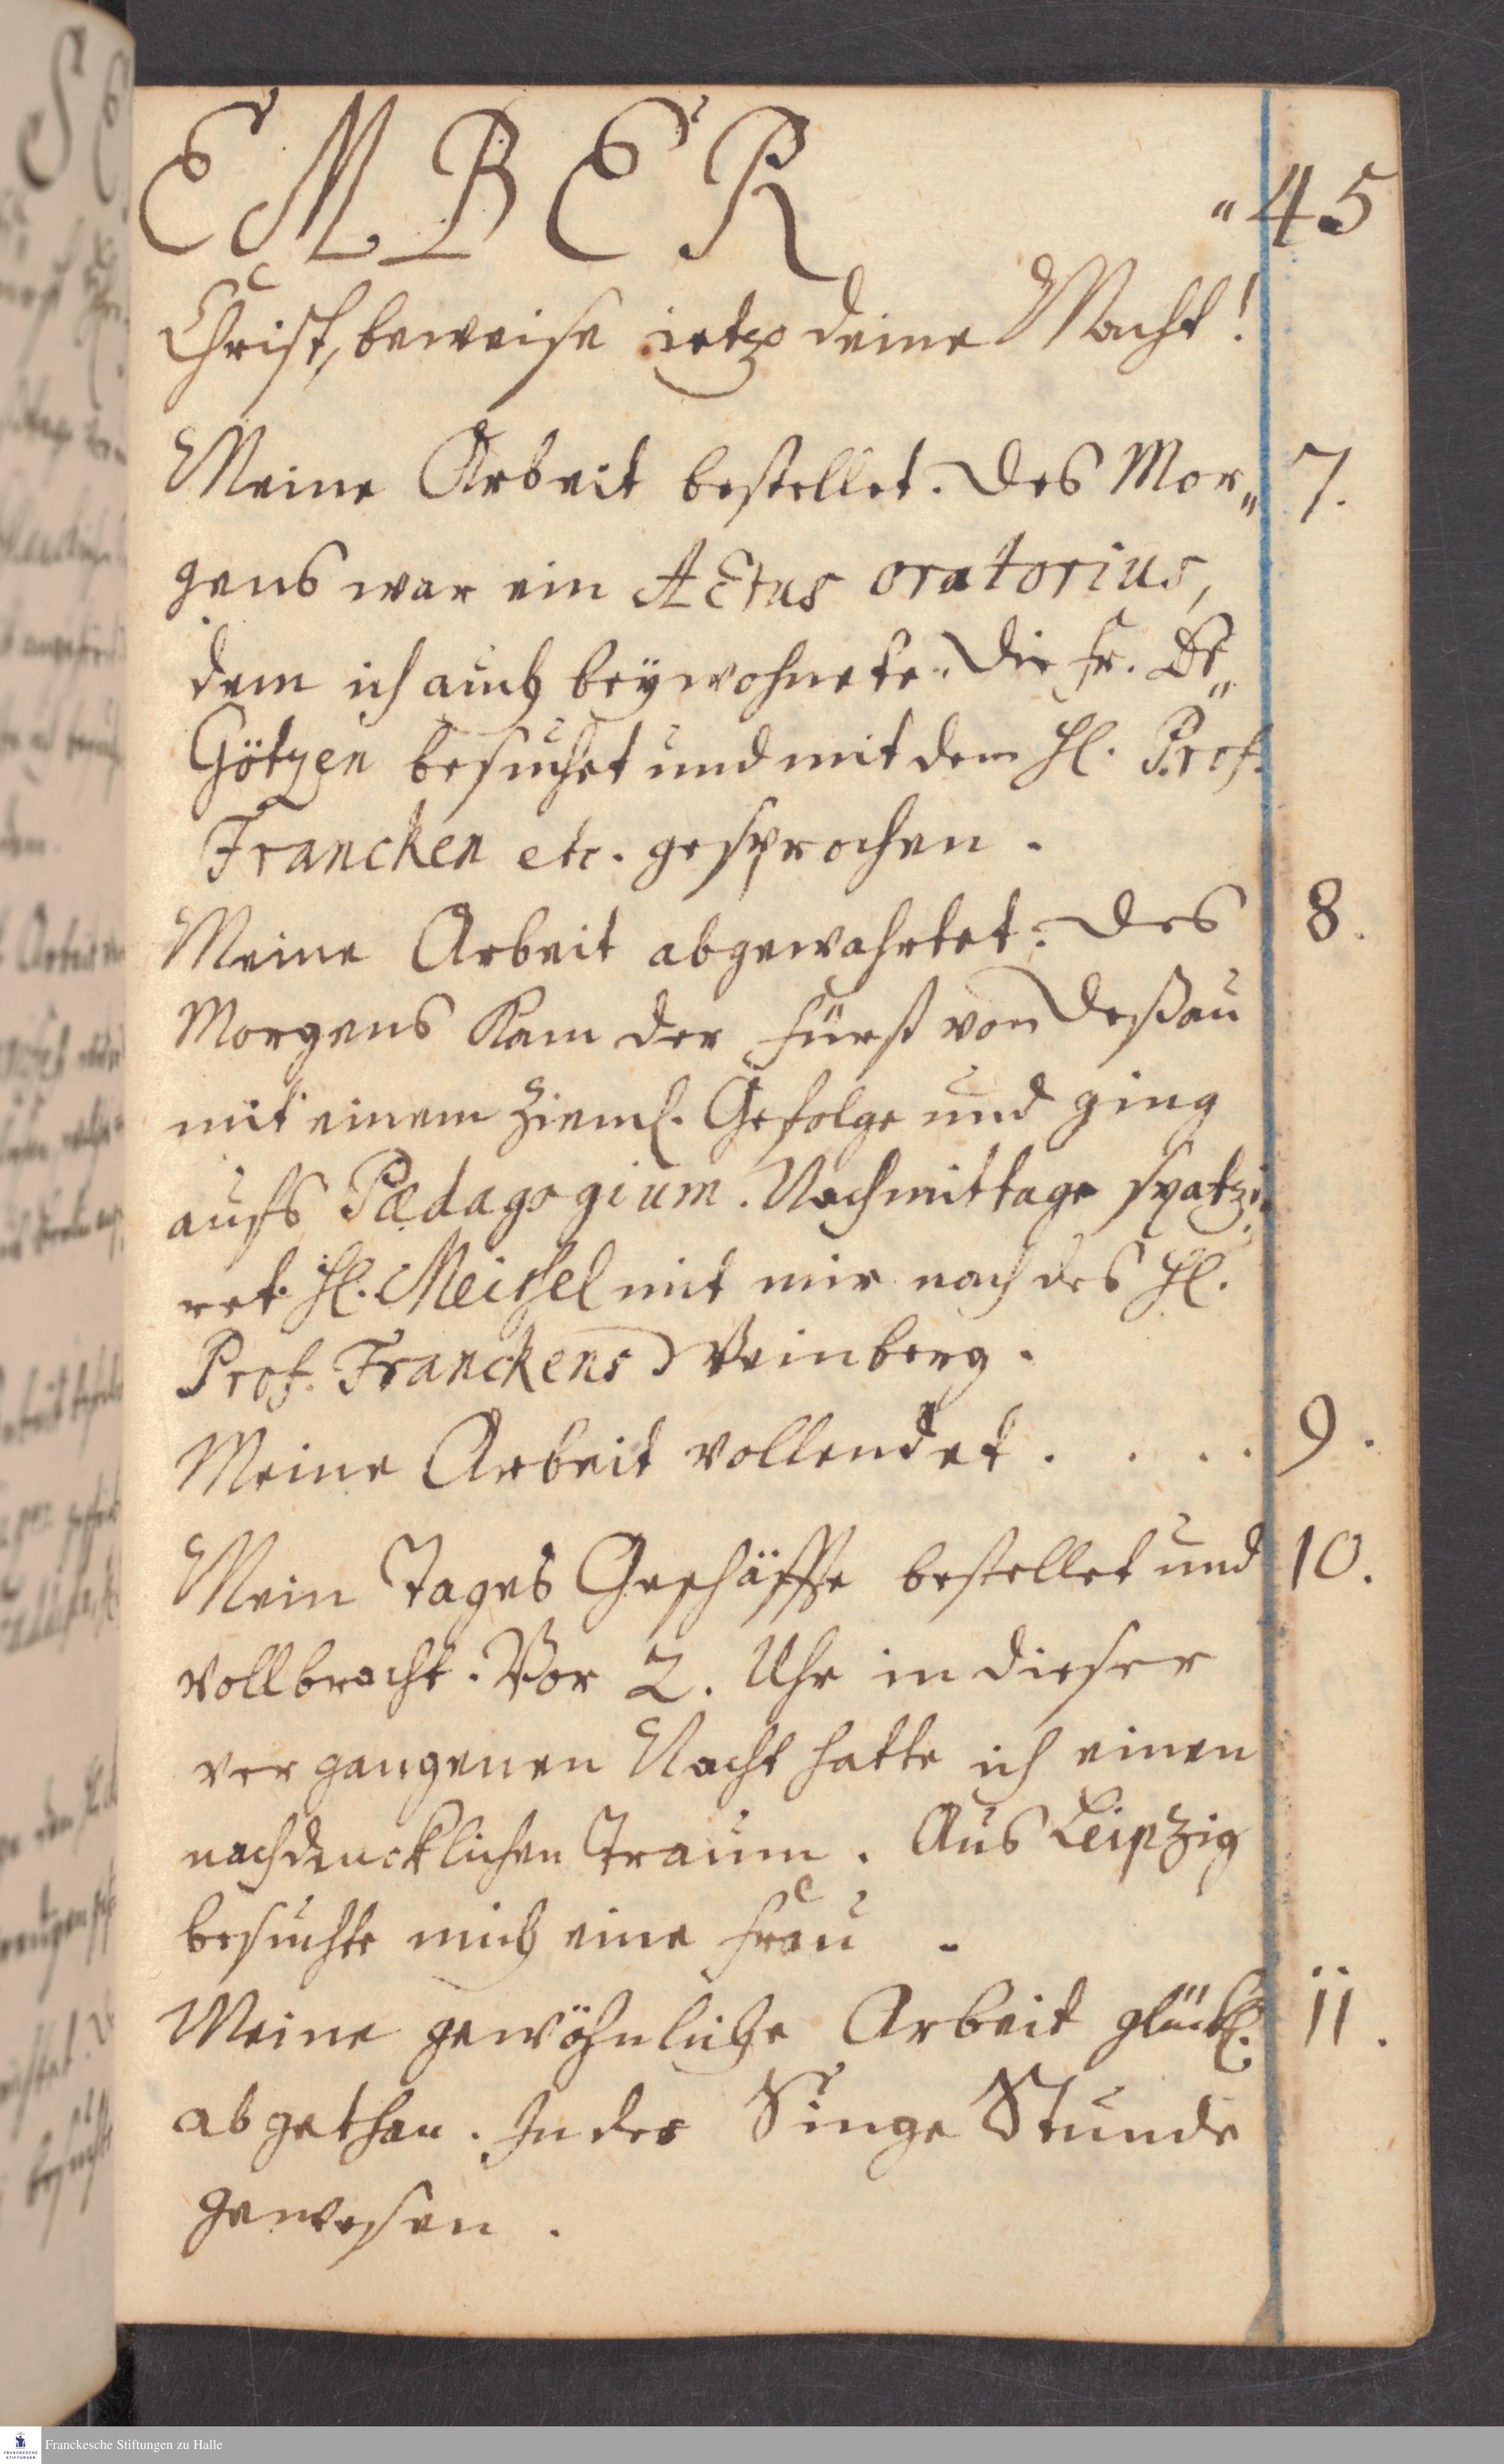 EMBER
"45
Christ, beweise ietzo deine Macht!
Meine Arbeit bestellet. Des Mor„ 7.
gens war ein Actus oratorius,
dem ich auch beÿwohnete. Die Fr.
Götzen besuchet und mit dem Hl. Prof.
Francken etc. gesprochen.
Meine Arbeit abgewahrtet. Des 8.
Morgens kam der Fürst von Deßau
mit einem zieml. Gefolge und ging
aufs Pædagogium. Nachmittage spatzi„
ret Hl. Meisel mit mir nach des Hl.
Prof. Franckens Weinberg.
Meine Arbeit vollendet. . . . 9.
Mein Tages Geschäffte bestellet und 10.
vollbracht. Vor 2. Uhr in dieser
vergangenen Nacht hatte ich einen
nachdencklichen Traum. Aus Leipzig
besuchte mich eine Frau.
Meine gewöhnliche Arbeit glückl. 11.
abgethan. In der Singe Stunde
gewesen.
Franckesche Stiftungen zu Halle